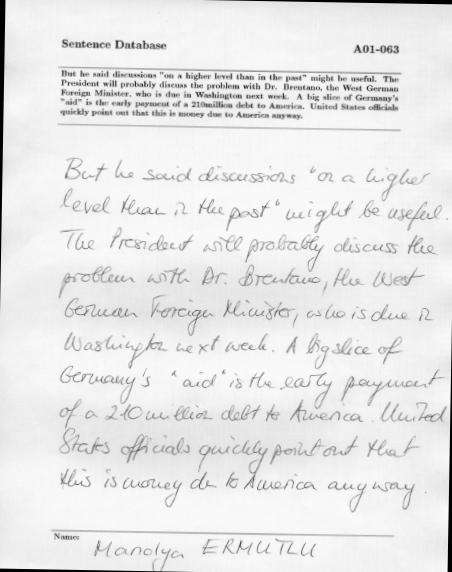 Sentence Database A01-063
But he said discussions "on a higher level than in the past" might be useful. The
President will probably discuss the problem with Dr. Brentano, the West German
Foreign Minister, who is due in Washington next week. A big slice of Germany's
"aid" is the early payment of a 210million debt to America. United States officials
quickly point out that this is money due to America anyway.
But he said discussions "on a higher
level than in the past" might be useful.
The President will probably discuss the
problem with Dr. Brentano, the West
German Foreign Minister, who is due in
Washington next week. A big slice of
Germany's "aid" is the early payment
of a 210million debt to America. United
States officials quickly point out that
this is money due to America anyway.
Name:
Manolya ERMUTLU